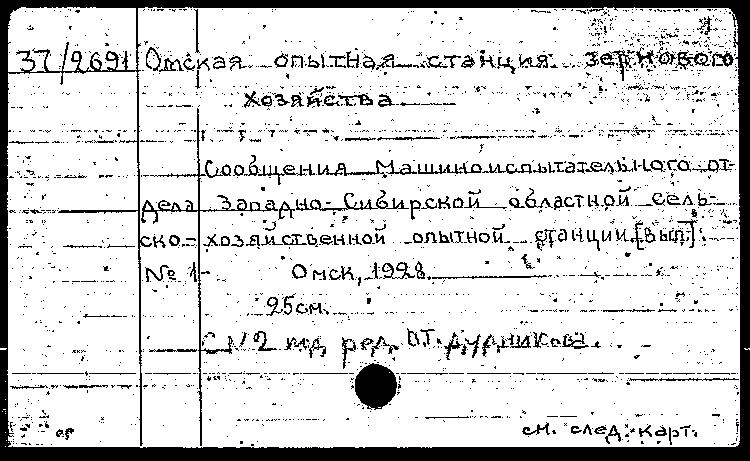 37/2691 Омская опытная станция зернового
хозяйства.
Сообщения Машиноиспытательного от-
дела Западно-Сибирской областной сель-
ско-хозяйственной опытной станции.[вып]:
№ 1- Омск, 1928.
25см.
С №2 под ред. Дудникова.
см. след. карт.